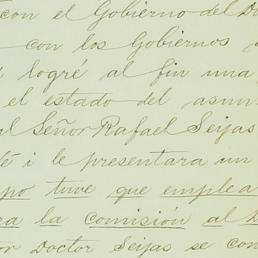 con el Gobierno del D
con los Gobiernos
logré al fin una
el estado del asun
al Señor Rafael Seijas
té i le presentara un
po tuve que emplea
ra la comisión al D
or Doctor Seijas se con